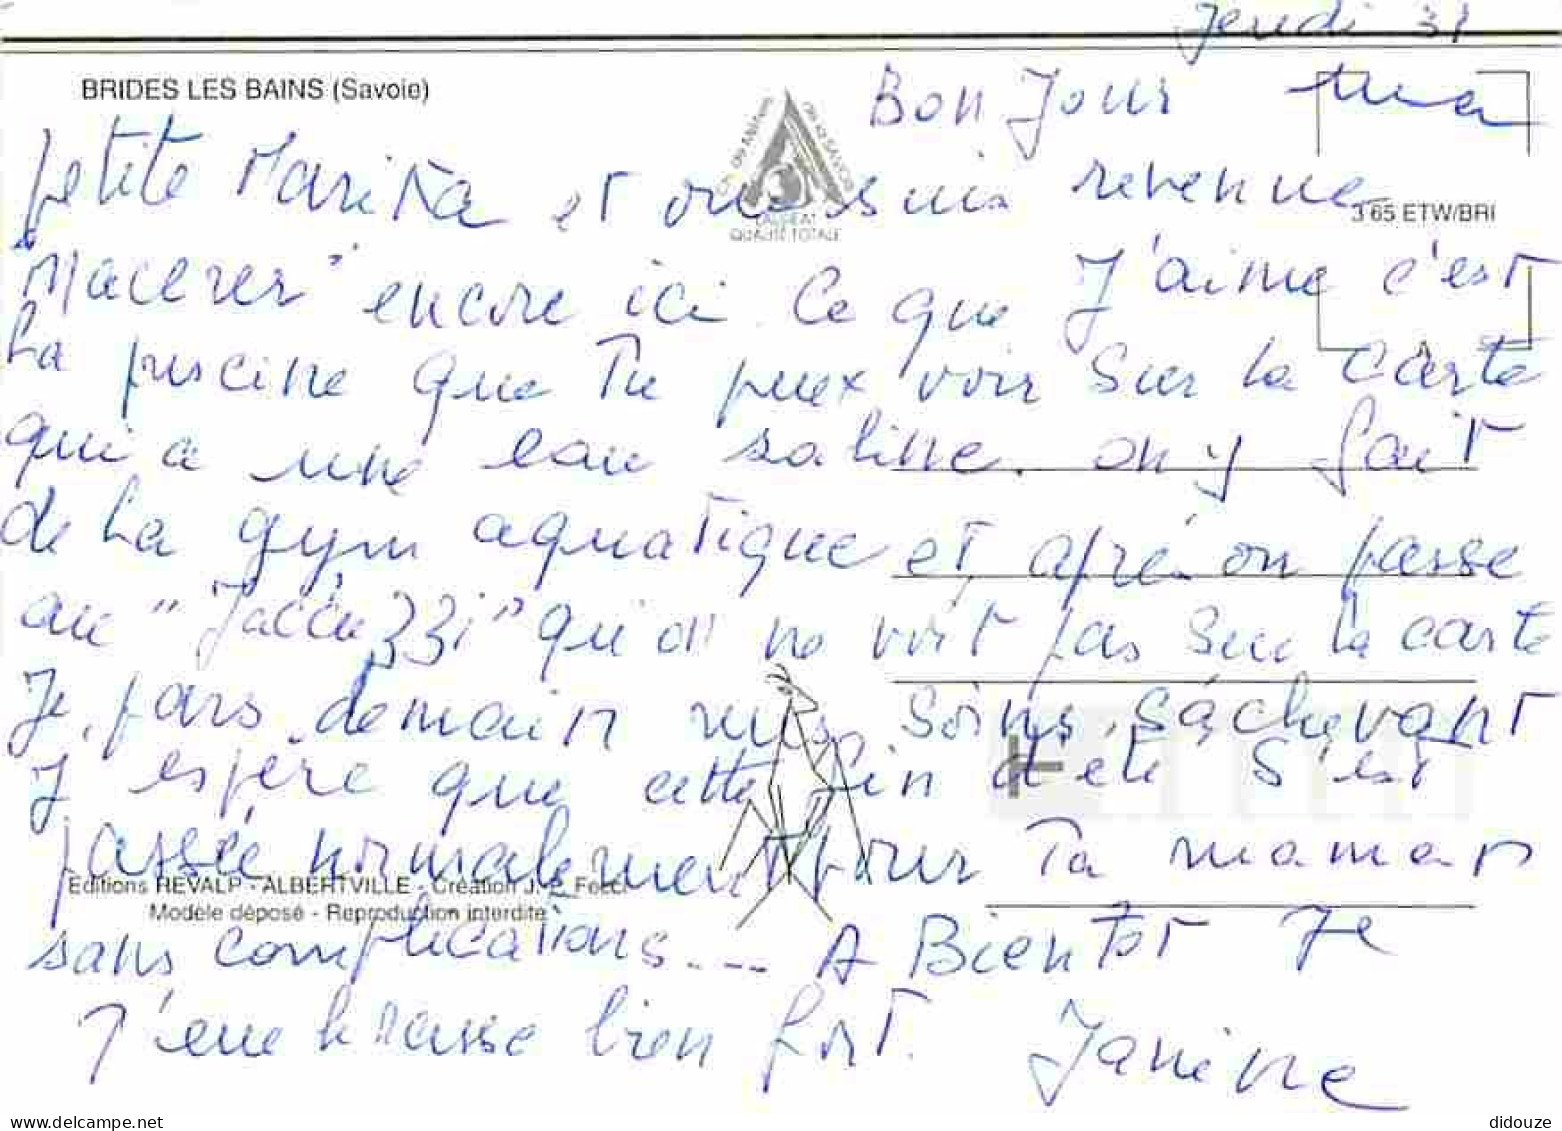 Jeudi 31
BRIDES LES BAINS (Savoie)
Bon Jour ma
petite Marika et oui suis revenue
3 65 ETW/BRI
LAUREAT
QUALITE TOTALE
"Macerer" encore ici. Ce que J'aime c'est
La piscine que Tu peux voir Sur la carte
qui a une eau saline. on y fait
de La gym aquatique et, apré on passe
au "Jaccuzzi" qu'on ne voit pas sur la carte
Je pars demain mes soins s'achevant
J espère que cette fin d'été S'est
passée normalement pour Ta maman
Editions REVALP - ALBERTVILLE - Création J.-P. Fecci
Modèle déposé - Reproduction interdite
sans complications... A Bientot Je
T'embrasse bien fort. Janine
www.delcampe.net
didouze